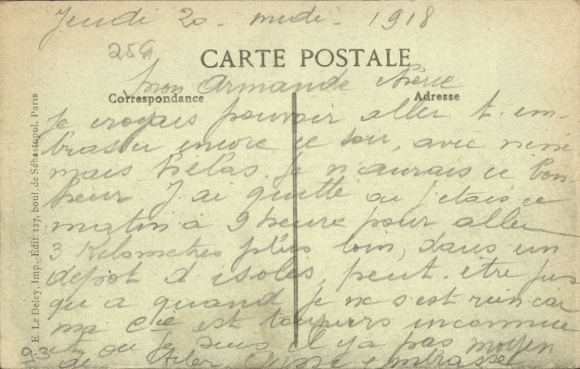 Jeudi 20 - midi - 1918
259
CARTE POSTALE
Mon Armande chérie
Correspondance
Adresse
Je croyais pouvoir aller t. em-
brasser encore ce soir, avec
mais hélas. Je n'aurais ce bon-
heur J'ai quitté ou j'étais ce
matin a 9 heure pour aller
3 Kilometres plus loin, dans un
depot d isolés, peut. être jus
qu a quand je ne s'est rien car
ma Cie est toujours inconnue
ou je suis il y a pas moyen
de filer embrasse
E. Le Deley, Imp.-Edit. 127, boul. de Sébastopol, Paris